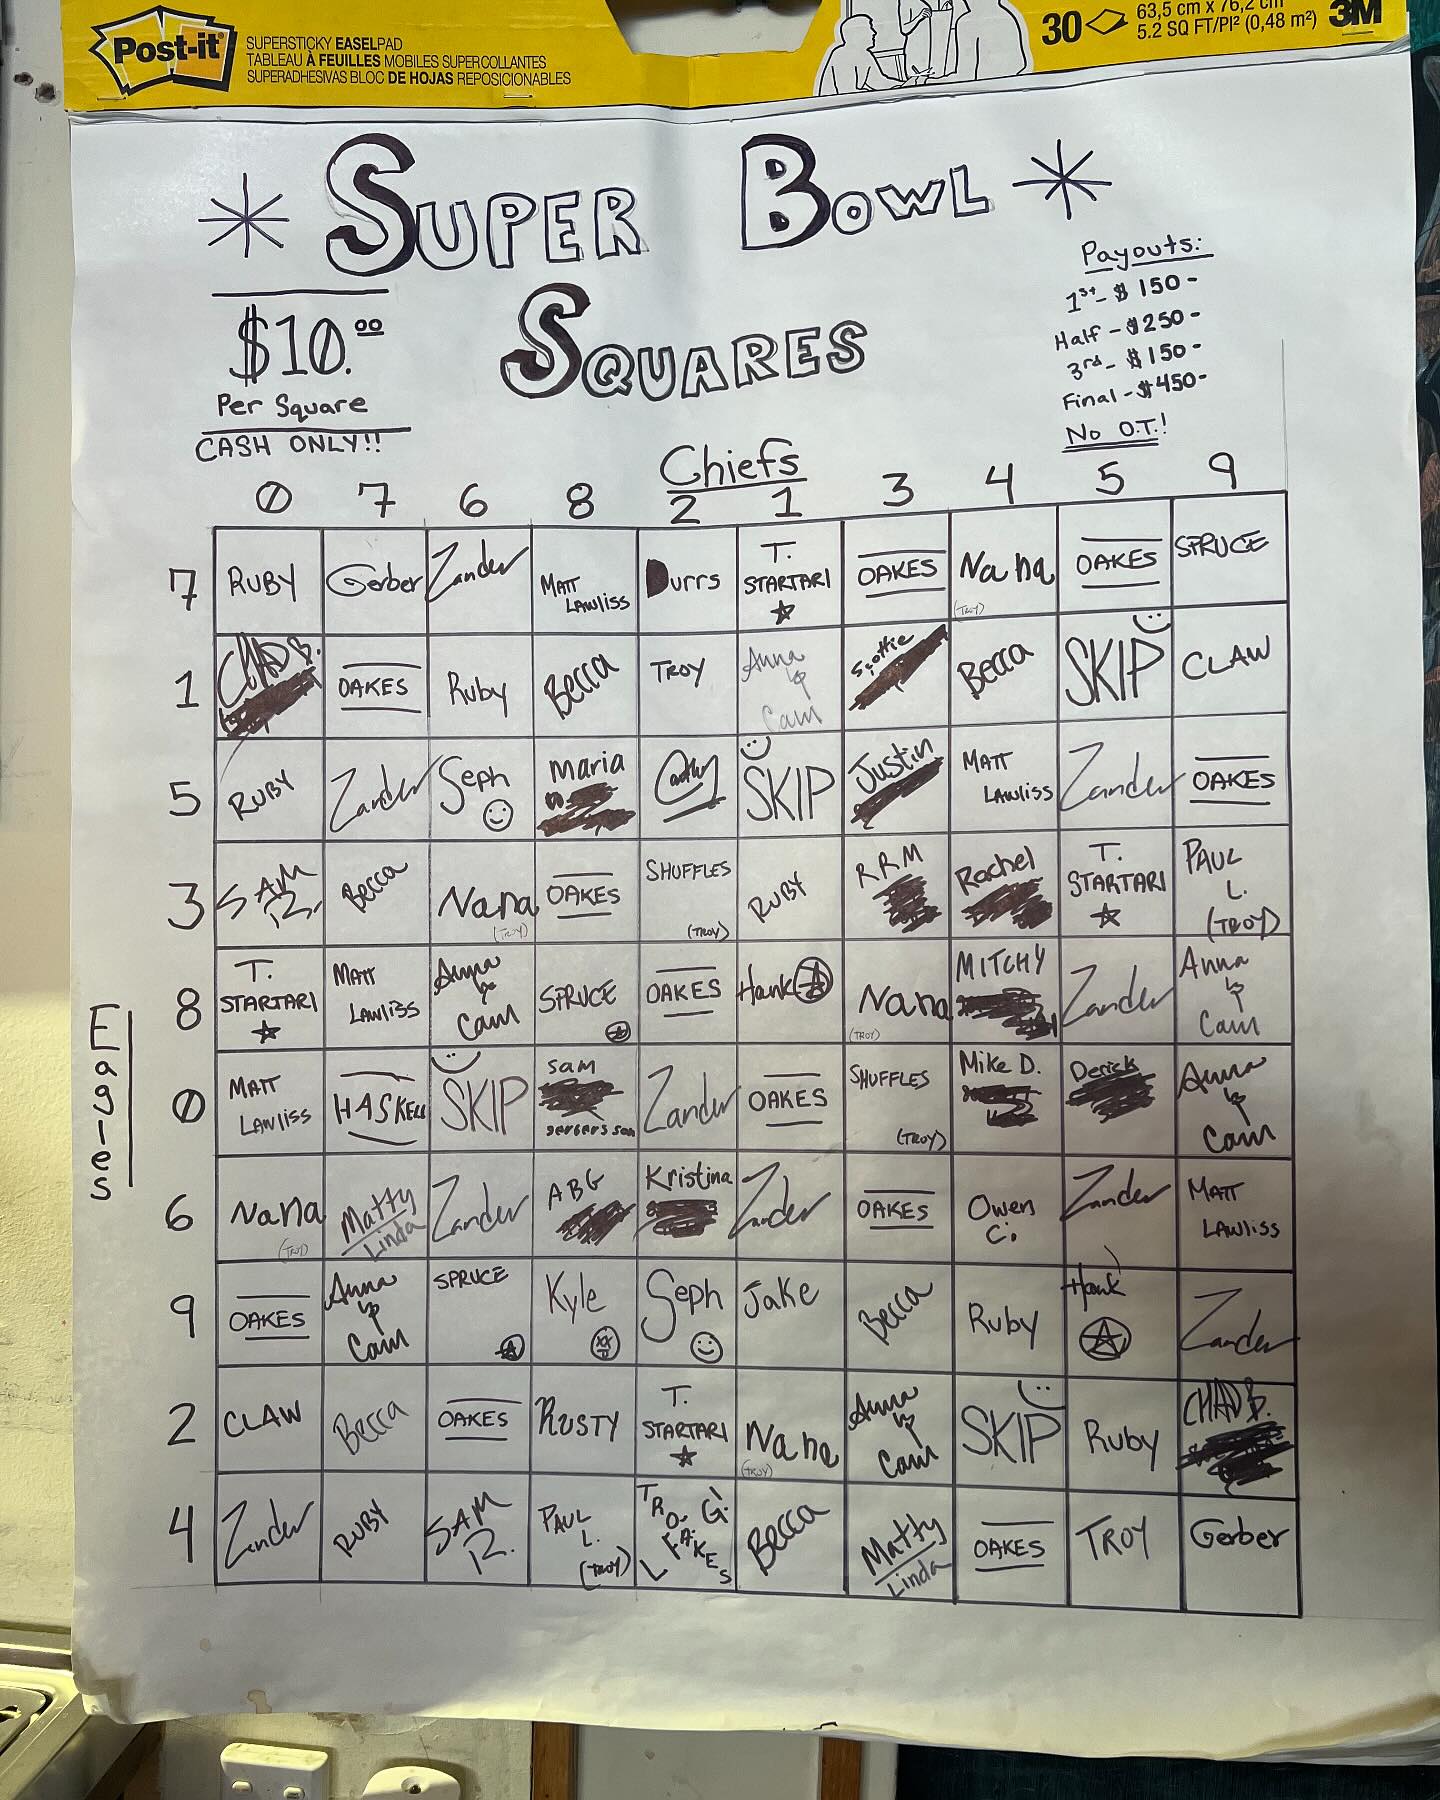 Post-it®
SUPERSTICKY EASELPAD
TABLEAU À FEUILLES MOBILES SUPERCOLLANTES
SUPERADHESIVAS BLOC DE HOJAS REPOSICIONABLES
30
63,5 cm x 76,2 cm
5.2 SQ FT/PI² (0,48 m²)
3M
SUPER BOWL
SQUARES
$10.00
Per Square
CASH ONLY!!
Payouts:
1st - $150-
Half - $250-
3rd - $150-
Final - $450-
No O.T.!
Chiefs
0 7 6 8 2 1 3 4 5 9
Eagles
7 RUBY Gerber Zander MATT LAWLISS Durrs T. STARTARI OAKES Nana (TROY) OAKES SPRUCE
1 CHAD B. OAKES Ruby Becca TROY Anna Cam Scottie Becca SKIP CLAW
5 RUBY Zander Seph Maria SKIP Justin MATT LAWLISS Zander OAKES
3 SAM R. Becca Nana (TROY) OAKES SHUFFLES (TROY) RUBY RRM Rachel T. STARTARI PAUL L. (TROY)
8 T. STARTARI MATT LAWLISS Anna Cam SPRUCE OAKES Hank Nana (TROY) MITCHY Zander Anna Cam
0 MATT LAWLISS HASKELL SKIP Sam gerbers son Zander OAKES SHUFFLES (TROY) Mike D. Derick Anna Cam
6 Nana (TROY) Matty Linda Zander ABG Kristina Zander OAKES Owen C. Zander MATT LAWLISS
9 OAKES Anna Cam SPRUCE Kyle Seph Jake Becca Ruby Hank Zander
2 CLAW Becca OAKES RUSTY T. STARTARI Nana (TROY) Anna Cam SKIP Ruby CHAD B.
4 Zander RUBY SAM R. PAUL L. (TROY) Becca Matty Linda OAKES TROY Gerber